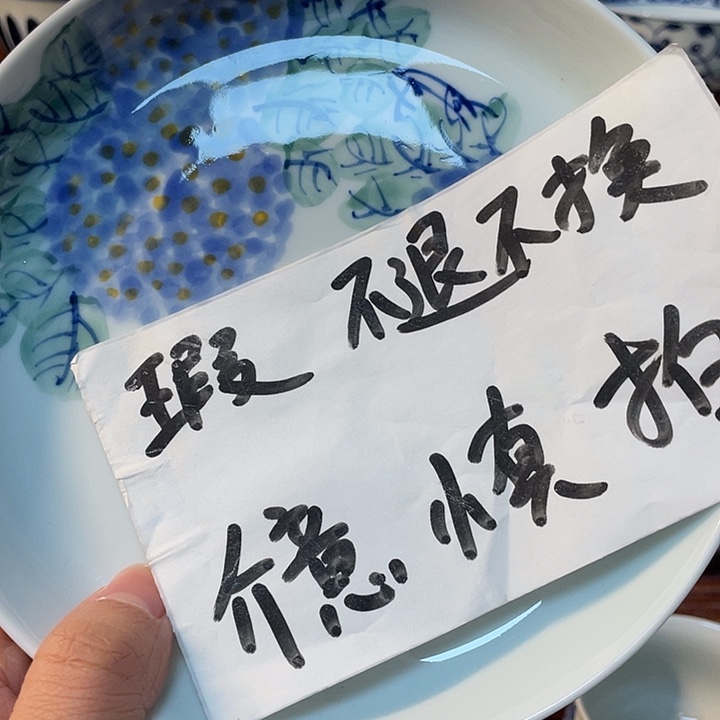 瑕 不退不换
介意慎拍